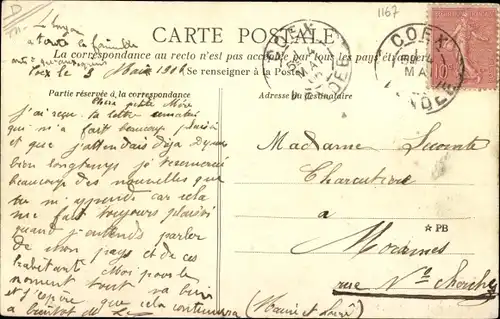 1167
CARTE POSTALE
La correspondance au recto n'est pas acceptée par tous les pays étrangers
Se renseigner à la Poste
Partie réservée à la correspondance
Adresse du destinataire
COEX
COEX
MAI
Chère petite
J'ai reçu ta lettre
qui m'a fait beaucoup plaisir
et que j'attendais déjà Depuis
bien longtemps je te remercie
beaucoup des nouvelles que
tu m'apprends car cela
me fait toujours plaisir
quand j'entends parler
de mon pays et de ces
habitants Moi pour le
moment tout va bien
et j'espère que cela continuera
a bientôt de
Madame Lecomte
Charcutière
a
★ PB
rue Nve